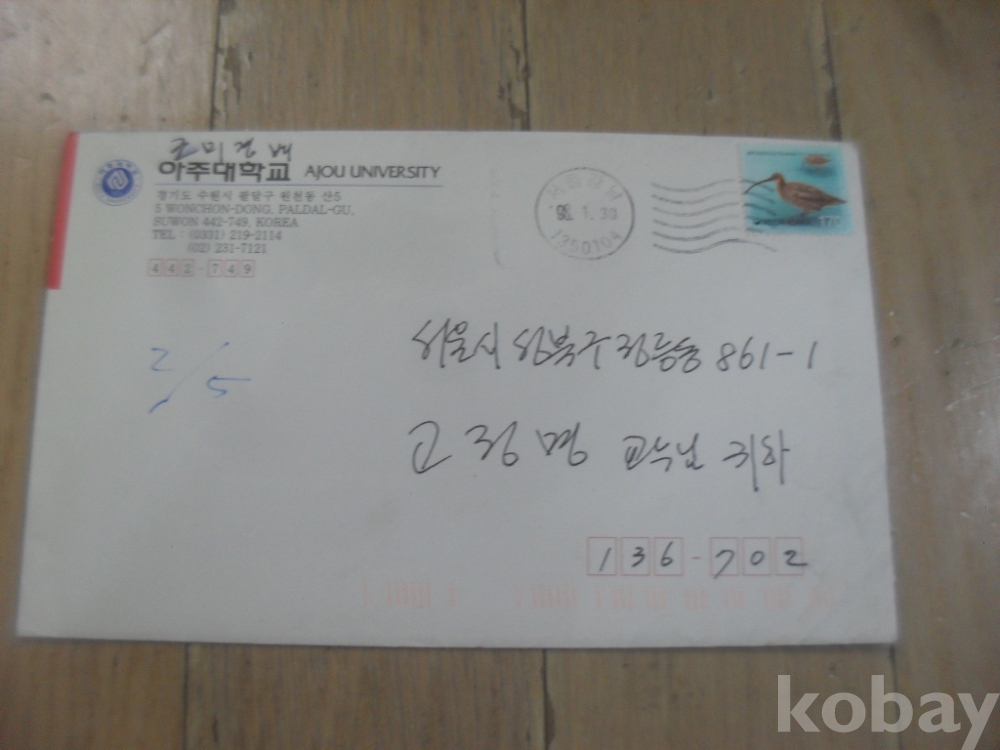 아주대학교 AJOU UNIVERSITY
경기도 수원시 팔달구 원천동 산5
5 WONCHON-DONG, PALDAL-GU,
SUWON 442-749, KOREA
TEL : (0331) 219-2114
(02) 231-7121
442-749
1.30
1350104
170
2/5
서울시 성북구 정릉동 861-1
고정명 교수님 귀하
136-702
kobay